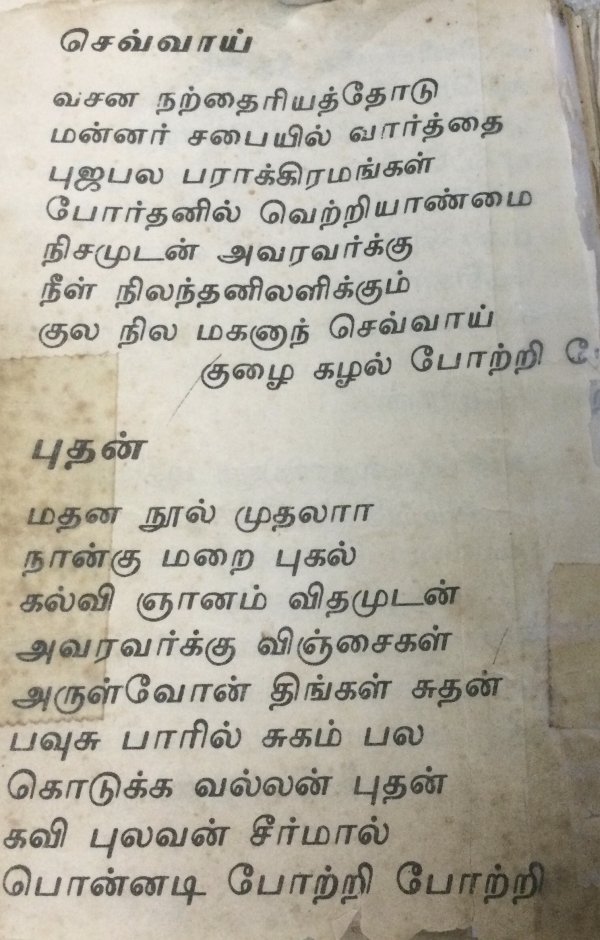 செவ்வாய்
வசன நற்தைரியத்தோடு
மன்னர் சபையில் வார்த்தை
புஜபல பராக்கிரமங்கள்
போர்தனில் வெற்றியாண்மை
நிசமுடன் அவரவர்க்கு
நீள் நிலந்தனிலளிக்கும்
குல நில மகனாந் செவ்வாய்
குழை கழல் போற்றி
புதன்
மதன நூல் முதலாா
நான்கு மறை புகல்
கல்வி ஞானம் விதமுடன்
அவரவர்க்கு விஞ்சைகள்
அருள்வோன் திங்கள் சுதன்
பவுசு பாரில் சுகம் பல
கொடுக்க வல்லன் புதன்
கவி புலவன் சீர்மால்
பொன்னடி போற்றி போற்றி